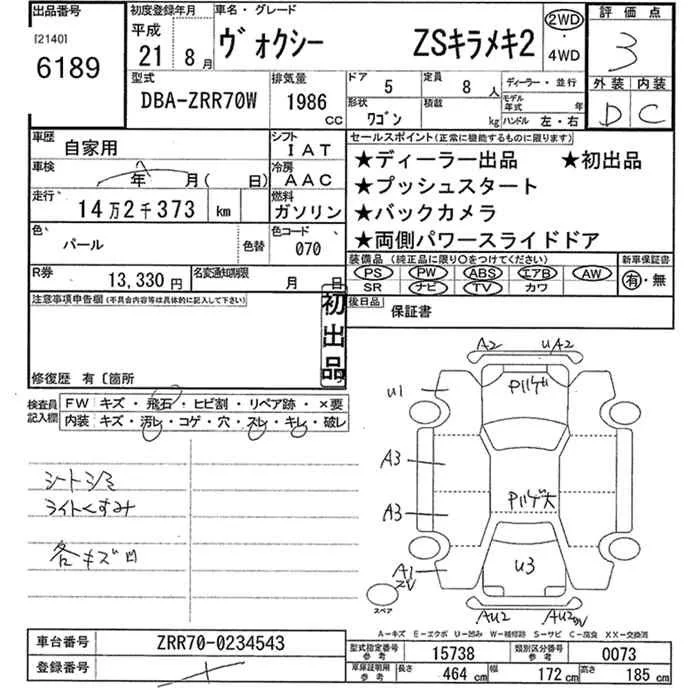 出品番号
[2140]
6189
初度登録年月
平成
21 8月
車名・グレード
ヴォクシー ZSキラメキ2
2WD
4WD
評価点
3
外装 内装
D C
型式
DBA-ZRR70W
排気量
1986
CC
ドア
5
定員
8
人
形状
ワゴン
積載
kg
ディーラー・並行
モデル年式 年
ハンドル 左・右
車歴
自家用
シフト
IAT
車検
年 月( 日)
冷房
AAC
走行
14万2千373 km
燃料
ガソリン
色
パール
色替
色コード
070
R券
13,330円
名変通知期限
月 日
セールスポイント(正常に機能するものに限ります)
★ディーラー出品 ★初出品
★プッシュスタート
★バックカメラ
★両側パワースライドドア
装備品(純正品に限り○をつけてください)
新車保証書
PS PW ABS エアB AW
SR ナビ TV カワ
有・無
後日品
保証書
注意事項申告欄(不具合内容等は具体的に記入して下さい)
初出品
修復歴 有〔箇所
検査員記入欄
FW キズ・飛石・ヒビ割・リペア跡・×要
内装 キズ・汚レ・コゲ・穴・スレ・キレ・破レ
シートシミ
ライトくすみ
各キズ凹
A2 UA2
U1
Pハゲ
A3
A3
Pハゲ大
A1
U3
AU2 AU2
スペア
A-キズ E-エクボ U-凹み W-補修跡 S-サビ C-腐食 XX-交換済
車台番号 ZRR70-0234543
登録番号
型式指定番号
参考
15738
類別区分番号
参考
0073
車庫証明用
参考
長さ 464 cm 幅 172 cm 高さ 185 cm